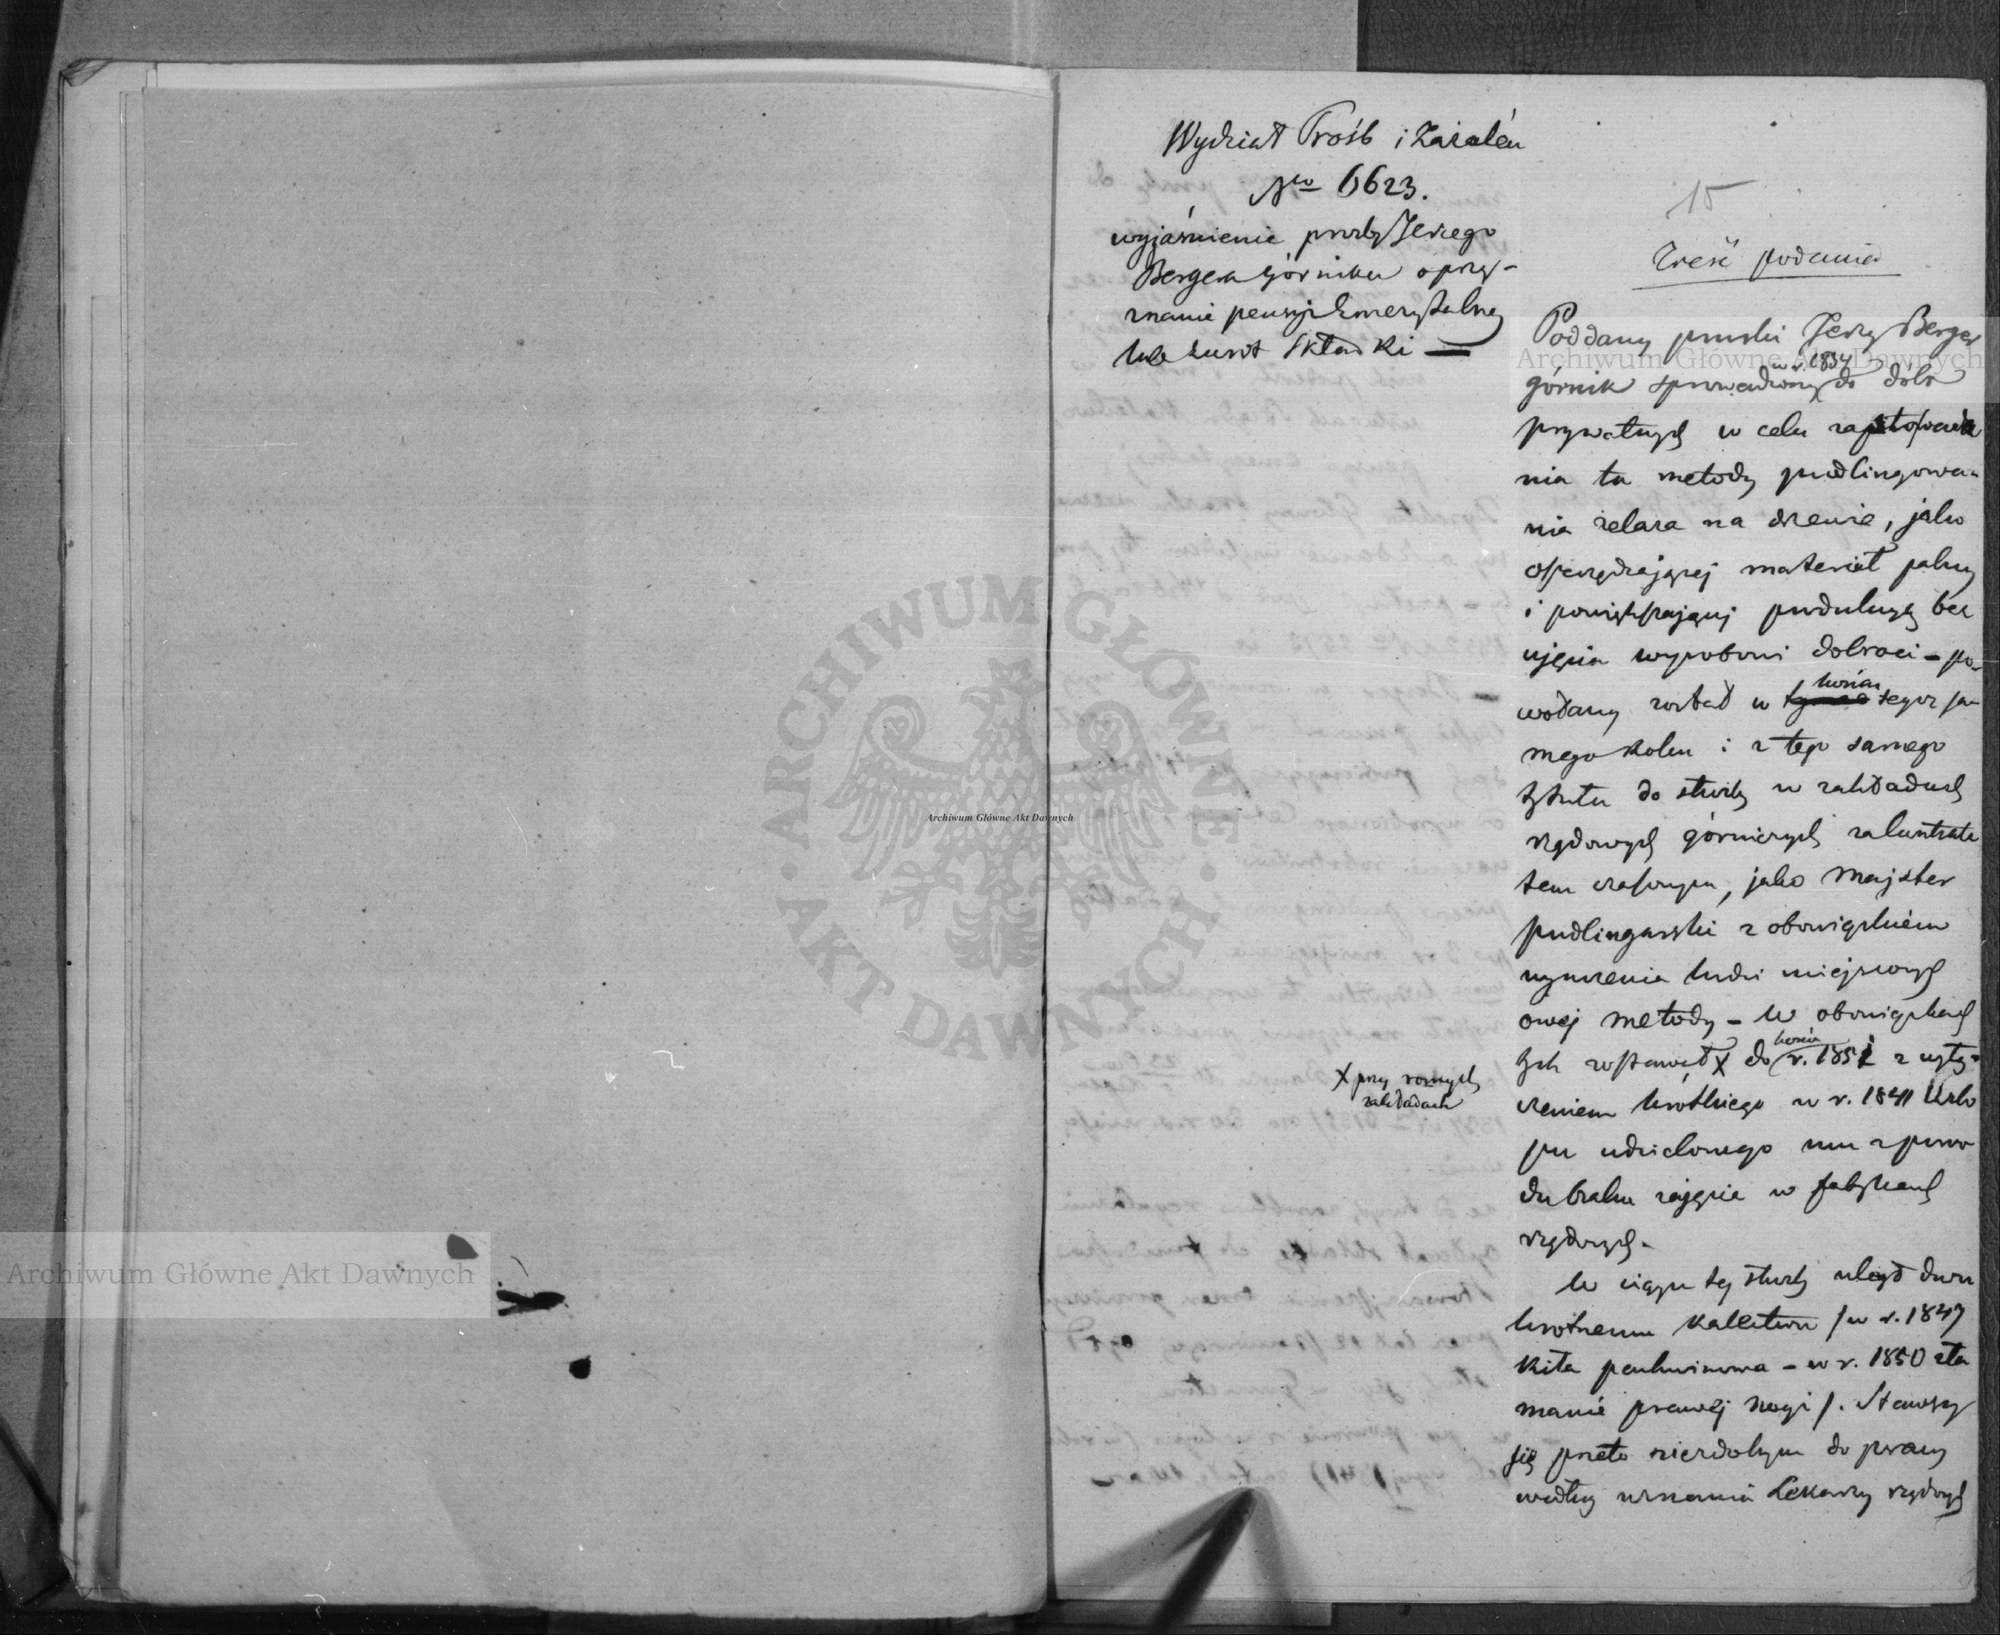 Wydział Prośb i Zażaleń
No 6623.
wyjaśnienie prośby Jerzego
Bergera Górnika o przy-
znanie pensyi Emerytalnej
lub zwrot Składki —
15
Treść podania
Poddany pruski Jerzy Berger
górnik sprowadzony w r. 1834 do dóbr
prywatnych w celu zaprowadze
nia tu metody pudlingowa-
nia żelaza na drzewie, jako
oszczędzającej materiał palny
i powiększającej produkcyę bez
ujęcia wyrobowi dobroci – po-
wołany został w końcu tegoż sa-
mego roku i z tego samego
tytułu do służby w zakładach
rządowych górniczych za kontrak
tem czasowym, jako Majster
pudlingarski z obowiązkiem
wyuczenia ludzi miejscowych
owej metody – W obowiązkach
tych zostawał X do końca r. 1851 z wyłą-
czeniem krótkiego w r. 1841 Urlo
pu udzielonego mu z powo
du braku zajęcia w fabrykach
rządowych.
X przy różnych
zakładach
W ciągu tej służby uległ dwu
krotnemu kalectwu /w r. 1847
Kiła pachwinowa – w r. 1850 zła
manie prawej nogi/. Stawszy
się przeto niezdolnym do pracy
według uznania Lekarzy rządowych
Archiwum Główne Akt Dawnych
Archiwum Główne Akt Dawnych
Archiwum Główne Akt Dawnych
ARCHIWUM GŁÓWNE
AKT DAWNYCH